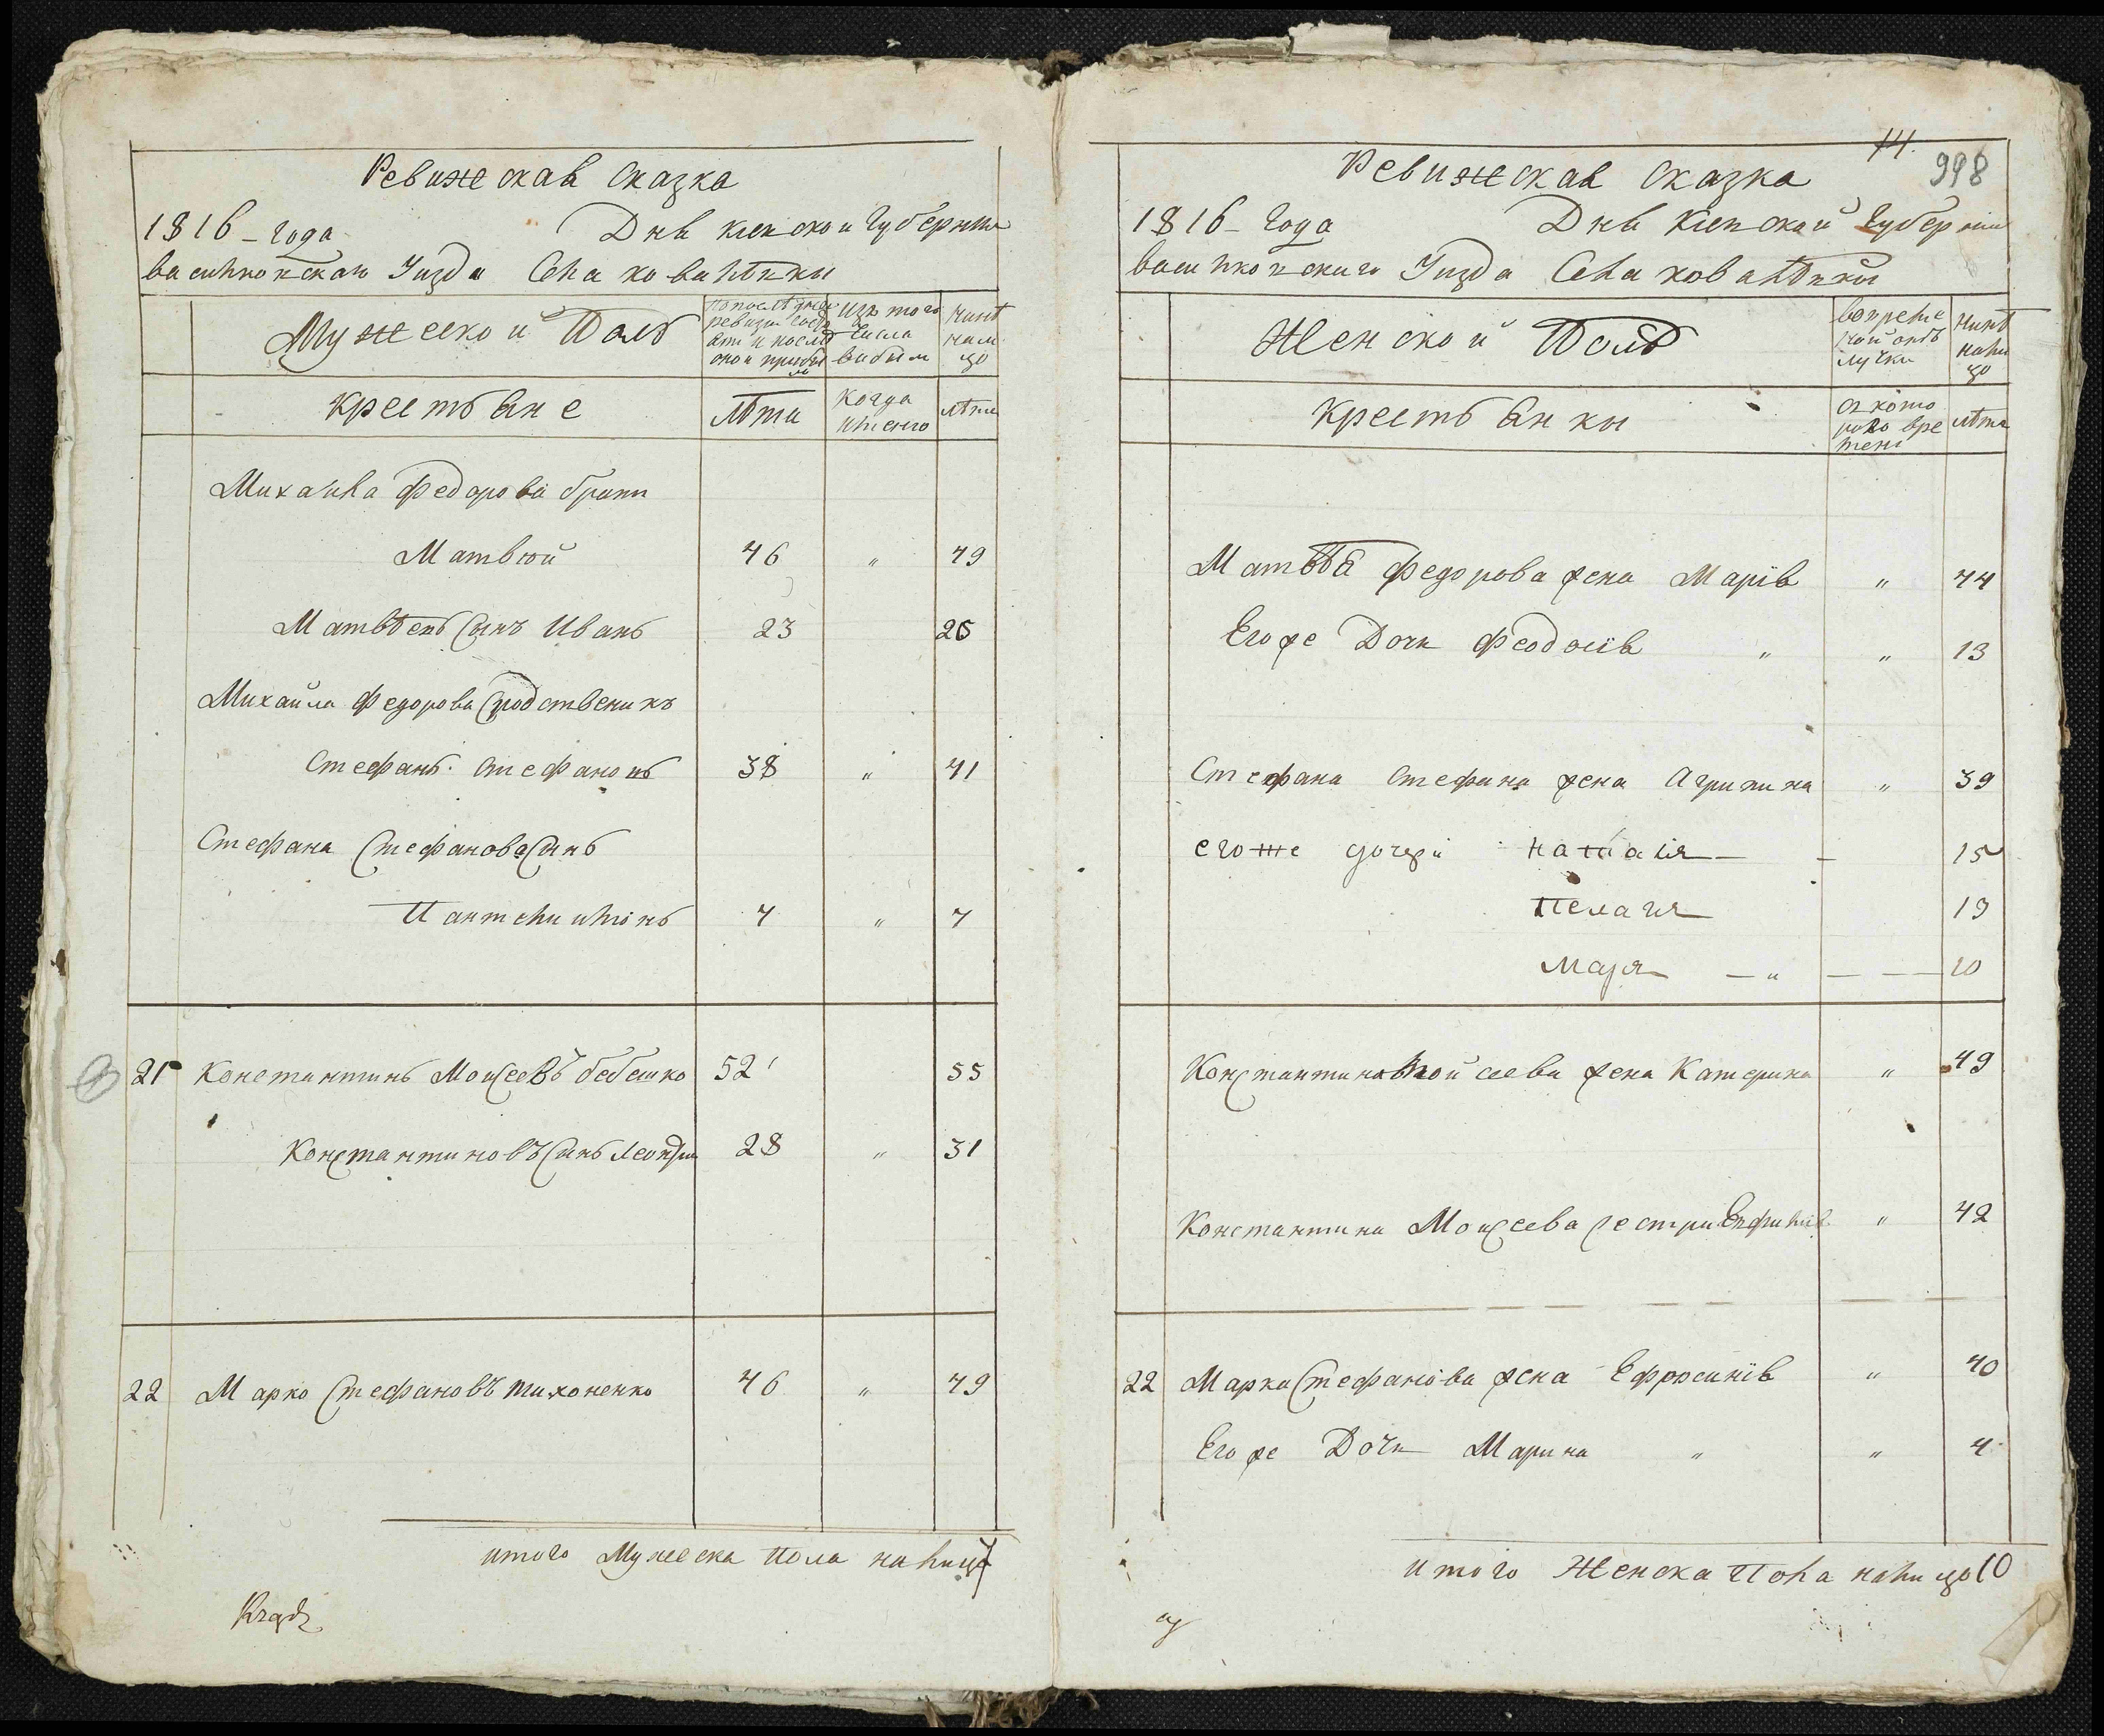 Ревижская Сказка
1816-года Дня киевской Губернии
васильковскаго Уизда Села ковалѣвки
Мужеской Полъ
Изъ того числа выбыли
нинѣ налицо
Крестьяне
лѣта
когда имено
лѣта
Михайла Федорова братъ
Матвѣй 46 " 49
Матвѣевъ Синъ Иванъ 23 26
Михайла Федорова Сродственикъ
Стефанъ Стефановъ 38 " 41
Стефана Стефанова Синъ
Пантелимонъ 4 " 7
21 Константинъ Мойсеевъ бебешко 52 55
Константиновъ Синъ Леонтий 28 " 31
22 Марко Стефановъ Тихоненко 46 " 49
итого Мужеска Пола налицо 7
14.
998
Ревижская Сказка
1816-Года Дня Киевской Губернии
васильковскаго Уизда Села ковалѣвки
Женской Полъ
вовремено й отлучки
нинѣ налицо
Крестьянки
Съ которого времени
лѣта
Матвѣя Федорова жена Марія " 44
Егоже Дочь Феодосія " " 13
Стефана Стефана жена Агрипина " 39
егоже дочери Наталія - - 15
Пелагия 13
Маря - " - - 10
Константина Мойсеева жена Катерина " 49
Константина Мойсеева сестра " 42
22 Марка Стефанова жена Ефросинія " 40
Егоже Дочь Марина " " 4
итого Женска Пола налицо 10